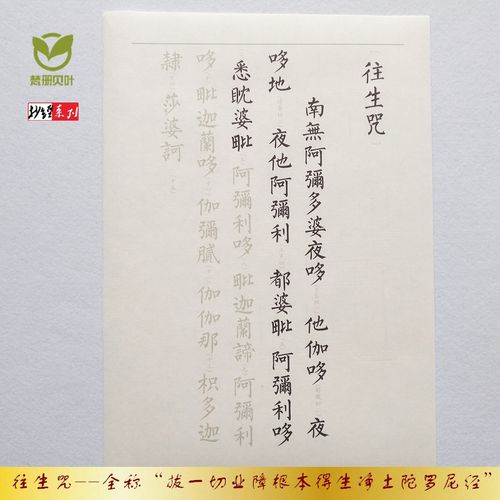 梵册贝叶
抄经系列
往生咒
南無阿彌多婆夜哆 他伽哆 夜
哆地 夜他阿彌利 都婆毗 阿彌利哆
悉眈婆毗 阿彌利哆 毗迦蘭諦 阿彌利
哆 毗迦蘭哆 伽彌膩 伽伽那 枳多迦
隸 莎婆訶
往生咒--全称“拔一切业障根本得生净土陀罗尼经”